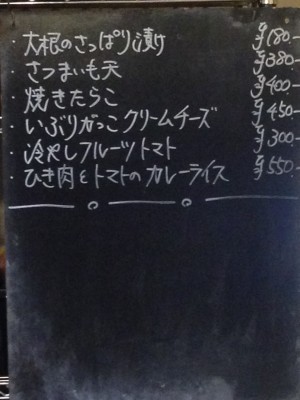 ・大根のさっぱり漬け ¥180-
・さつまいも天 ¥380-
・焼きたらこ ¥400-
・いぶりがっこクリームチーズ ¥450-
・冷やしフルーツトマト ¥300-
・ひき肉とトマトのカレーライス ¥550-